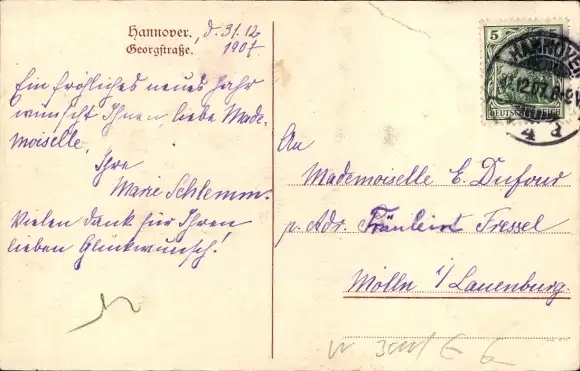 Hannover, d. 31.12
Georgstraße. 1907.
Ein fröhliches neues Jahr
wünscht Ihnen, liebe Made-
moiselle,
Ihre
Marie Schlemm.
Vielen Dank für Ihren
lieben Glückwunsch!
5
DEUTSCHES REICH
HANNOVER
31.12.07.8-9V
4 d
An
Mademoiselle E. Dufour
p. Adr. Fräulein Fressel
Mölln i/Lauenburg.